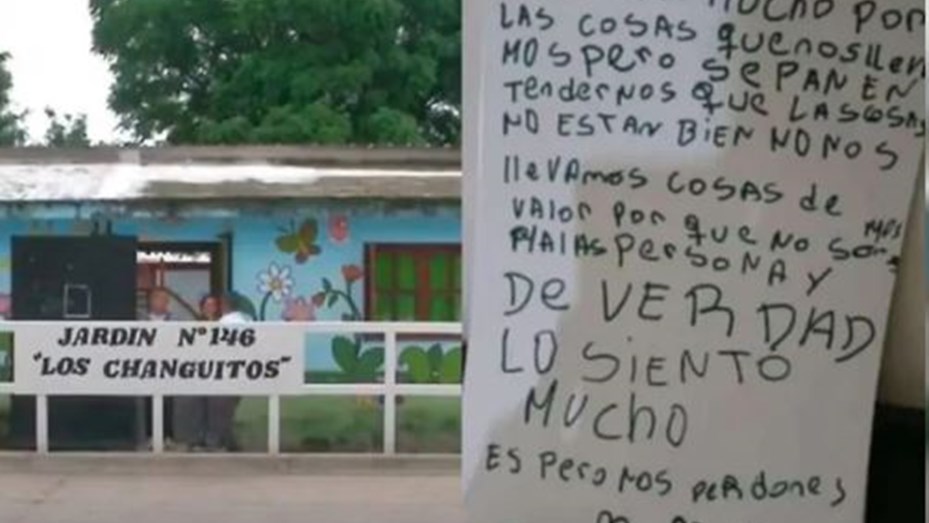 JARDIN N°146
"LOS CHANGUITOS"
MUCHO POR
LAS COSAS quenosllev
MOS pero SEPAN EN
TENderNOS QUE LAS COSAS
NO ESTAN BIEN NO NOS
llevAmos cosas de
VAlor por que NO SoMos
MALAS PersoNA y
De VERDAD
LO SIENTO
MUCHO
Es Pero NOS PERdones